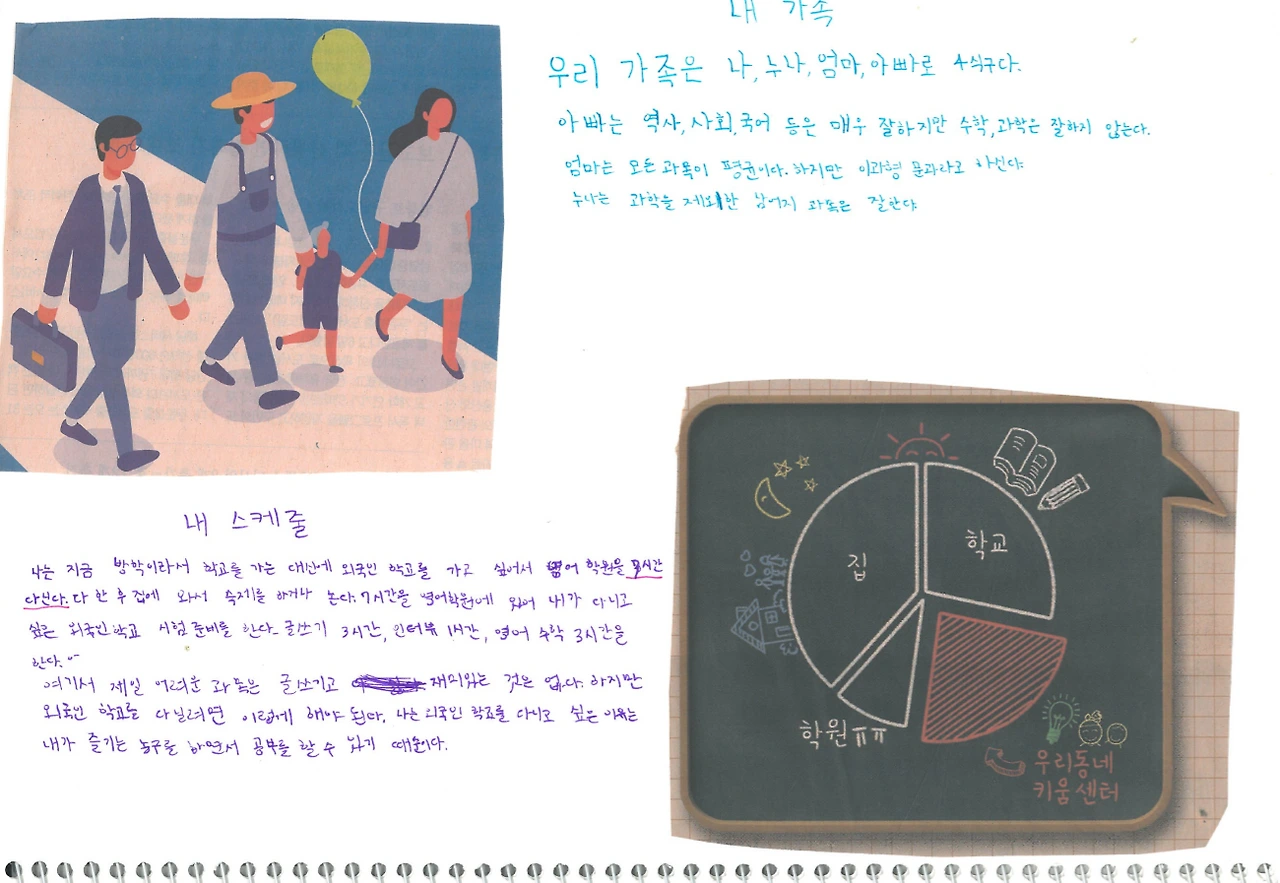 내 가족
우리 가족은 나, 누나, 엄마, 아빠로 4식구다.
아빠는 역사, 사회, 국어 등은 매우 잘하지만 수학, 과학은 잘하지 않는다.
엄마는 모든 과목이 평균이다. 하지만 이과형 문과라고 하신다.
누나는 과학을 제외한 나머지 과목은 잘한다.
학교
집
학원ㅠㅠ
우리동네
키움센터
내 스케줄
나는 지금 방학이라서 학교를 가는 대신에 외국인 학교를 가고 싶어서 영어 학원을 7시간
다닌다. 다 한 후 집에 와서 숙제를 하거나 논다. 7시간을 영어학원에 있어 내가 다니고
싶은 외국인학교 시험 준비를 한다. 글쓰기 3시간, 인터뷰 1시간, 영어 수학 3시간을
한다.
여기서 제일 어려운 과목은 글쓰기고 재미있는 것은 없다. 하지만
외국인 학교를 다닐려면 이렇게 해야 된다. 나는 외국인 학교를 다니고 싶은 이유는
내가 즐기는 농구를 하면서 공부를 할 수 있기 때문이다.